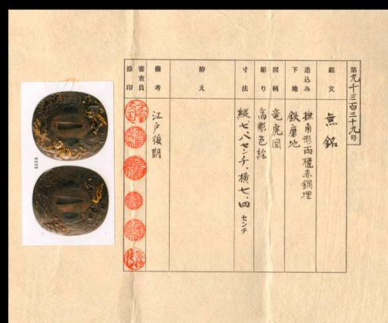 第九千三百三十九号
銘文 無銘
造込み 撫角形両櫃赤銅埋
下地 鉄磨地
図柄 竜虎図
彫り 高彫色絵
寸法 縦七、八センチ、横七、四センチ
拵え
備考 江戸後期
審査員
捺印